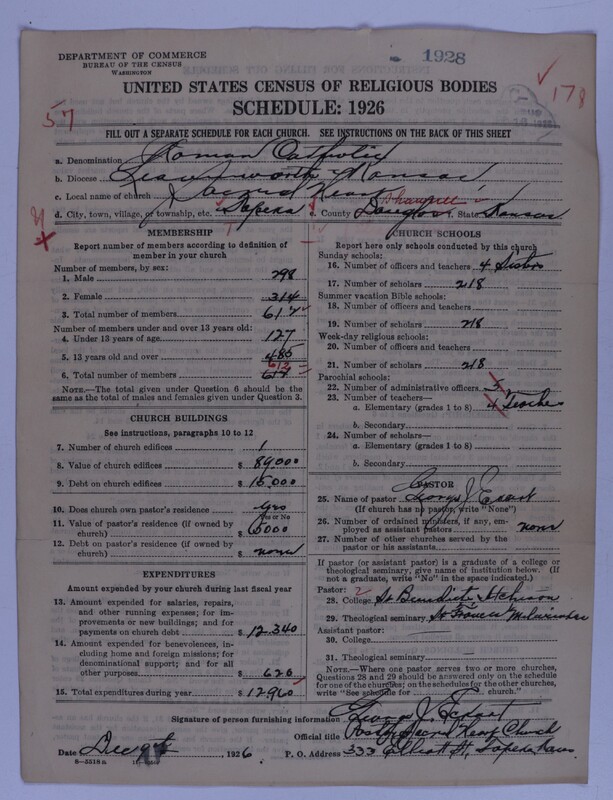 DEPARTMENT OF COMMERCE
BUREAU OF THE CENSUS
WASHINGTON
1928
UNITED STATES CENSUS OF RELIGIOUS BODIES
SCHEDULE: 1926
57
178
FILL OUT A SEPARATE SCHEDULE FOR EACH CHURCH. SEE INSTRUCTIONS ON THE BACK OF THIS SHEET
a. Denomination Roman Catholic
b. Diocese Leavenworth Kansas
c. Local name of church Sacred Heart
d. City, town, village, or township, etc. Topeka e. County Douglas f. State Kansas
Shawnee
MEMBERSHIP
Report number of members according to definition of member in your church
Number of members, by sex:
1. Male 298
2. Female 314
3. Total number of members 612
Number of members under and over 13 years old:
4. Under 13 years of age 127
5. 13 years old and over 485
612
6. Total number of members
NOTE.—The total given under Question 6 should be the same as the total of males and females given under Question 3.
CHURCH BUILDINGS
See instructions, paragraphs 10 to 12
7. Number of church edifices 1
8. Value of church edifices $ 89000
9. Debt on church edifices $ 15,000
10. Does church own pastor's residence yes
Yes or No
11. Value of pastor's residence (if owned by church) $ 6000
12. Debt on pastor's residence (if owned by church) $ none
EXPENDITURES
Amount expended by your church during last fiscal year
13. Amount expended for salaries, repairs, and other running expenses; for improvements or new buildings; and for payments on church debt $ 12,340
14. Amount expended for benevolences, including home and foreign missions; for denominational support; and for all other purposes $ 620
15. Total expenditures during year $ 12960
CHURCH SCHOOLS
Report here only schools conducted by this church
Sunday schools:
16. Number of officers and teachers 4 Sisters
17. Number of scholars 218
Summer vacation Bible schools:
18. Number of officers and teachers
19. Number of scholars 218
Week-day religious schools:
20. Number of officers and teachers
21. Number of scholars 218
Parochial schools:
22. Number of administrative officers
23. Number of teachers—
a. Elementary (grades 1 to 8) 4 Teachers
b. Secondary
24. Number of scholars—
a. Elementary (grades 1 to 8)
b. Secondary
PASTOR
25. Name of pastor George J.
(If church has no pastor, write "None")
26. Number of ordained ministers, if any, employed as assistant pastors none
27. Number of other churches served by the pastor or his assistants
If pastor (or assistant pastor) is a graduate of a college or theological seminary, give name of institution below. (If not a graduate, write "No" in the space indicated.)
Pastor:
28. College St Benedict's Atchison
29. Theological seminary St Francis Milwaukee
Assistant pastor:
30. College
31. Theological seminary
NOTE.—Where one pastor serves two or more churches, Questions 28 and 29 should be answered only on the schedule for one of the churches; on the schedules for the other churches, write "See schedule for church."
Signature of person furnishing information George J.
Official title Pastor Sacred Heart Church
Date Dec 9th, 1926 P. O. Address 333 Elliott St, Topeka Kans
8—5518a